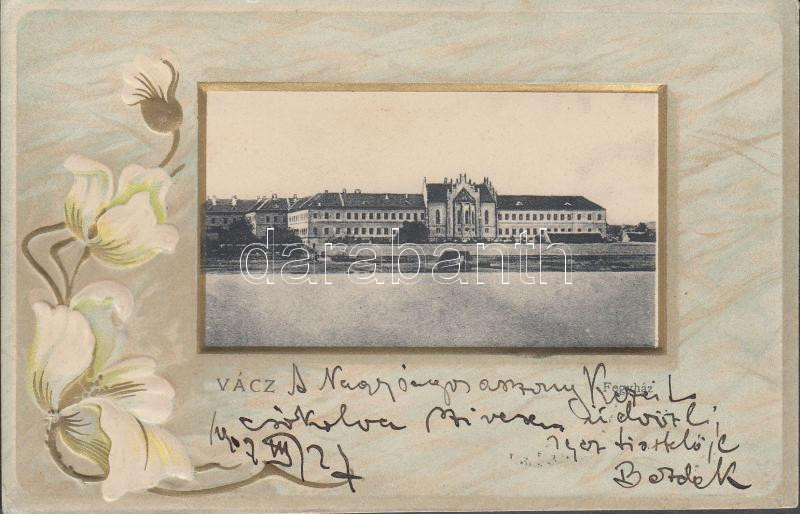 darabanth
VÁCZ Fegyház
A Nagyságos asszony Kezeit
csókolva szivesen üdvözli,
igaz tisztelője
1907 VII/27
Bozdek